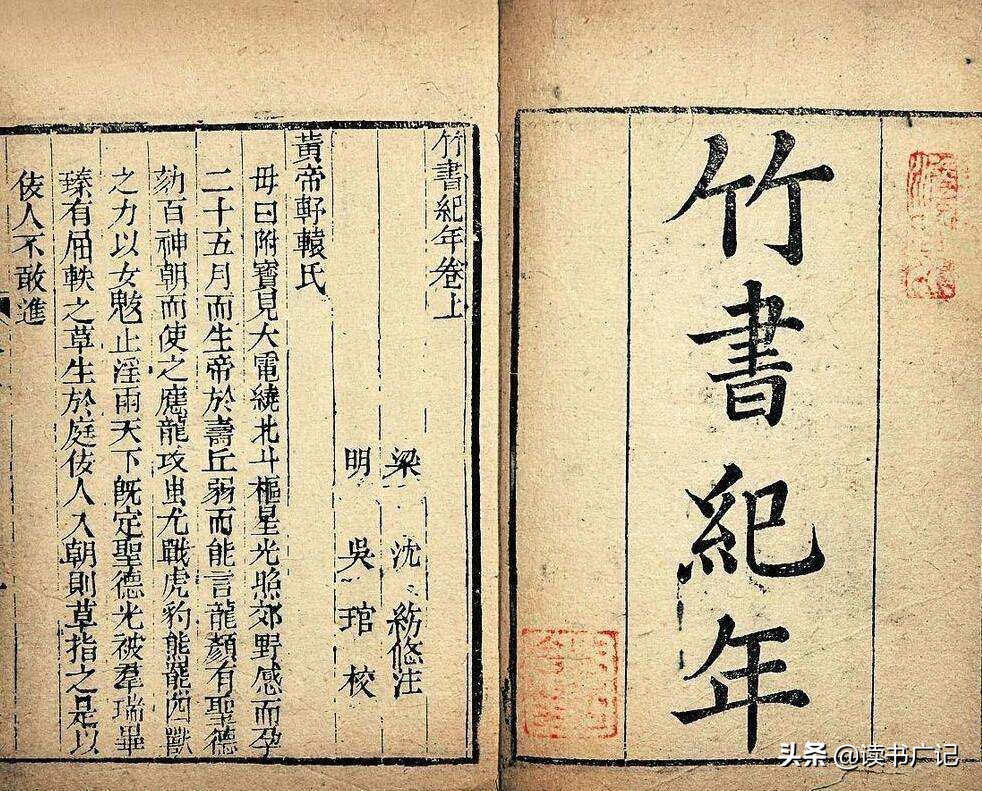 竹書紀年
竹書紀年卷上
梁 沈 注
明 吳琯校
黃帝軒轅氏
母曰附寶見大電繞北斗樞星光照郊野感而孕
二十五月而生帝於壽丘弱而能言龍顏有聖德
劾百神朝而使之應龍攻蚩尤戰虎豹熊羆四獸
之力以女魃止淫雨天下既定聖德光被羣瑞畢
臻有屈軼之草生於庭佞人入朝則草指之是以
佞人不敢進
头条 @读书广记